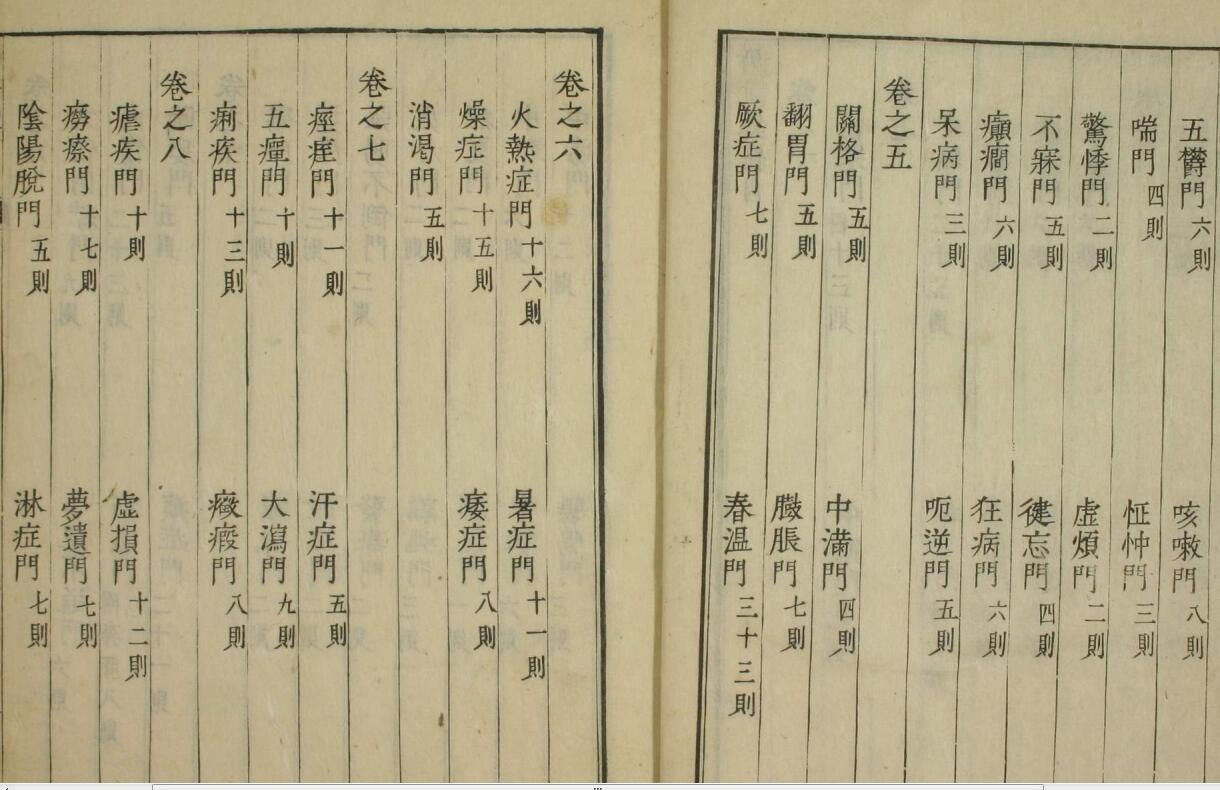 五欝門 六則 咳嗽門 八則
喘門 四則 怔忡門 三則
驚悸門 二則 虛煩門 二則
不寐門 五則 健忘門 四則
癲癎門 六則 狂病門 六則
呆病門 三則 呃逆門 五則
卷之五
關格門 五則 中滿門 四則
翻胃門 五則 臌脹門 七則
厥症門 七則 春温門 三十三則
卷之六
火熱症門 十六則 暑症門 十一則
燥症門 十五則 痿症門 八則
消渴門 五則
卷之七
痙痓門 十一則 汗症門 五則
五癉門 十則 大瀉門 九則
痢疾門 十三則 癥瘕門 八則
卷之八
瘧疾門 十則 虛損門 十二則
癆瘵門 十七則 夢遺門 七則
陰陽脫門 五則 淋症門 七則